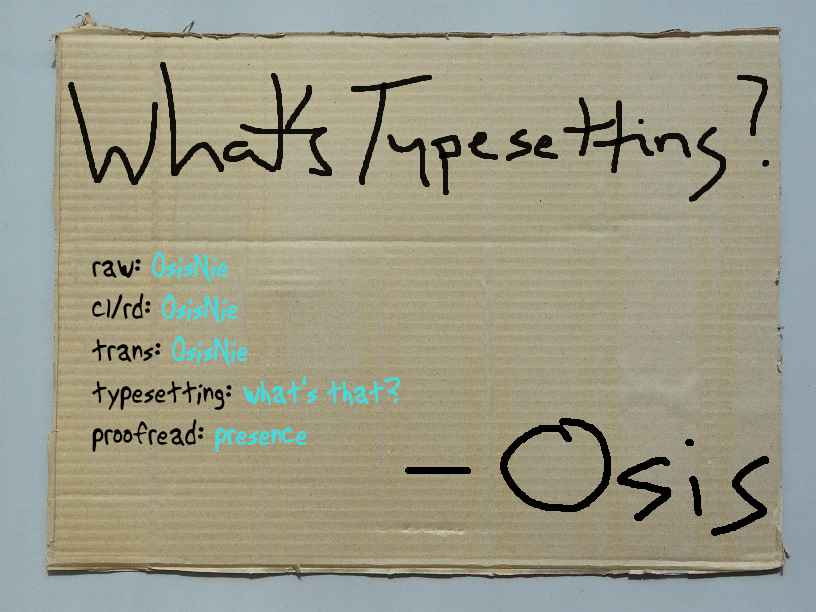 What's Typesetting?
raw: OsisNie
cl/rd: OsisNie
trans: OsisNie
typesetting: what's that?
proofread: presence
— Osis